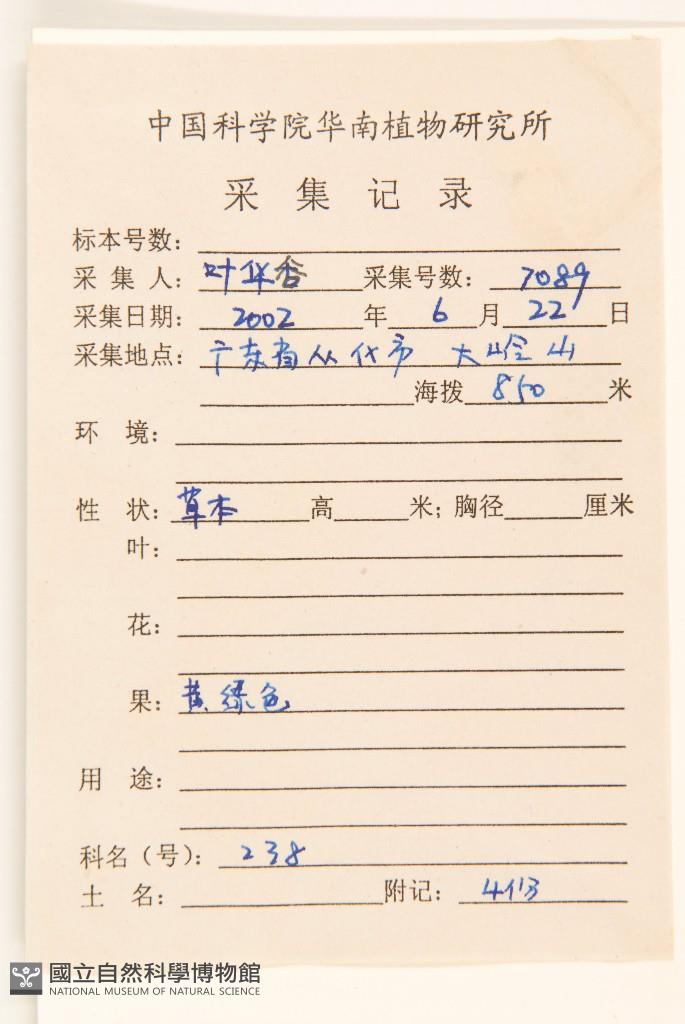 中国科学院华南植物研究所
采集记录
标本号数：
采集人：叶华谷 采集号数：7089
采集日期：2002 年 6 月 22 日
采集地点：广东省从化市 大岭山
海拨 850 米
环境：
性状：草本 高 米；胸径 厘米
叶：
花：
果：黄绿色
用途：
科名（号）：238
土名： 附记：4份
國立自然科學博物館
NATIONAL MUSEUM OF NATURAL SCIENCE